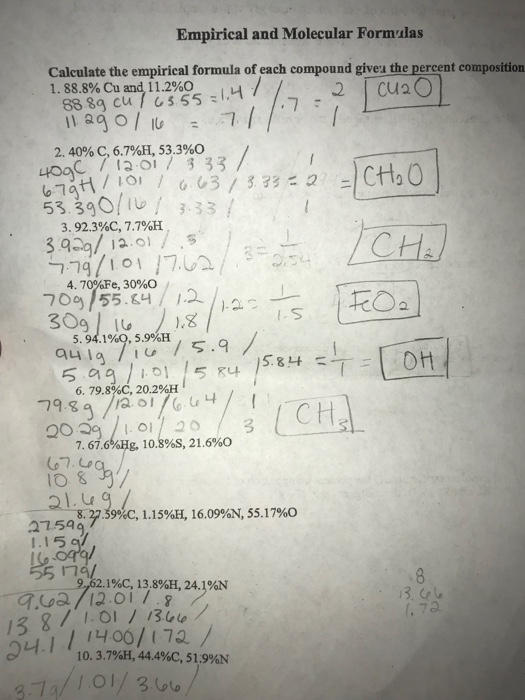 Empirical and Molecular Formulas
Calculate the empirical formula of each compound given the percent composition
1. 88.8% Cu and 11.2%O
88.8g Cu / 63.55 = 1.4 / .7 = 2 Cu2O
11.2g O / 16 = .7 / 1
2. 40% C, 6.7%H, 53.3%O
40gC / 12.01 / 3.33 / 1
6.7gH / 1.01 / 6.63 / 3.33 = 2 = CH2O
53.3gO / 16 / 3.33 / 1
3. 92.3%C, 7.7%H
3.92g / 12.01 / 3 = 1 CH2
7.7g / 1.01 / 7.62 / 2.54
4. 70%Fe, 30%O
70g / 55.84 / 1.2 / 1.2 = 1 FeO2
30g / 16 / 1.8 / 1.5
5. 94.1%O, 5.9%H
94.1g / 16 / 5.9 / 5.84 = 1 = OH
5.9g / 1.01 / 5.84 1
6. 79.8%C, 20.2%H
79.8g / 12.01 / 6.64 / 1 CH3
20.2g / 1.01 / 20 3
7. 67.6%Hg, 10.8%S, 21.6%O
67.6g
10.8g /
21.6g /
8. 27.59%C, 1.15%H, 16.09%N, 55.17%O
27.59g
1.15g/
16.09g/
55.17g/
9. 62.1%C, 13.8%H, 24.1%N
9.62 / 12.01 / .8
13.8 / 1.01 / 13.66 /
24.1 / 14.00 / 1.72 /
.8
13.66
1.72
10. 3.7%H, 44.4%C, 51.9%N
3.7g / 1.01 / 3.66 /